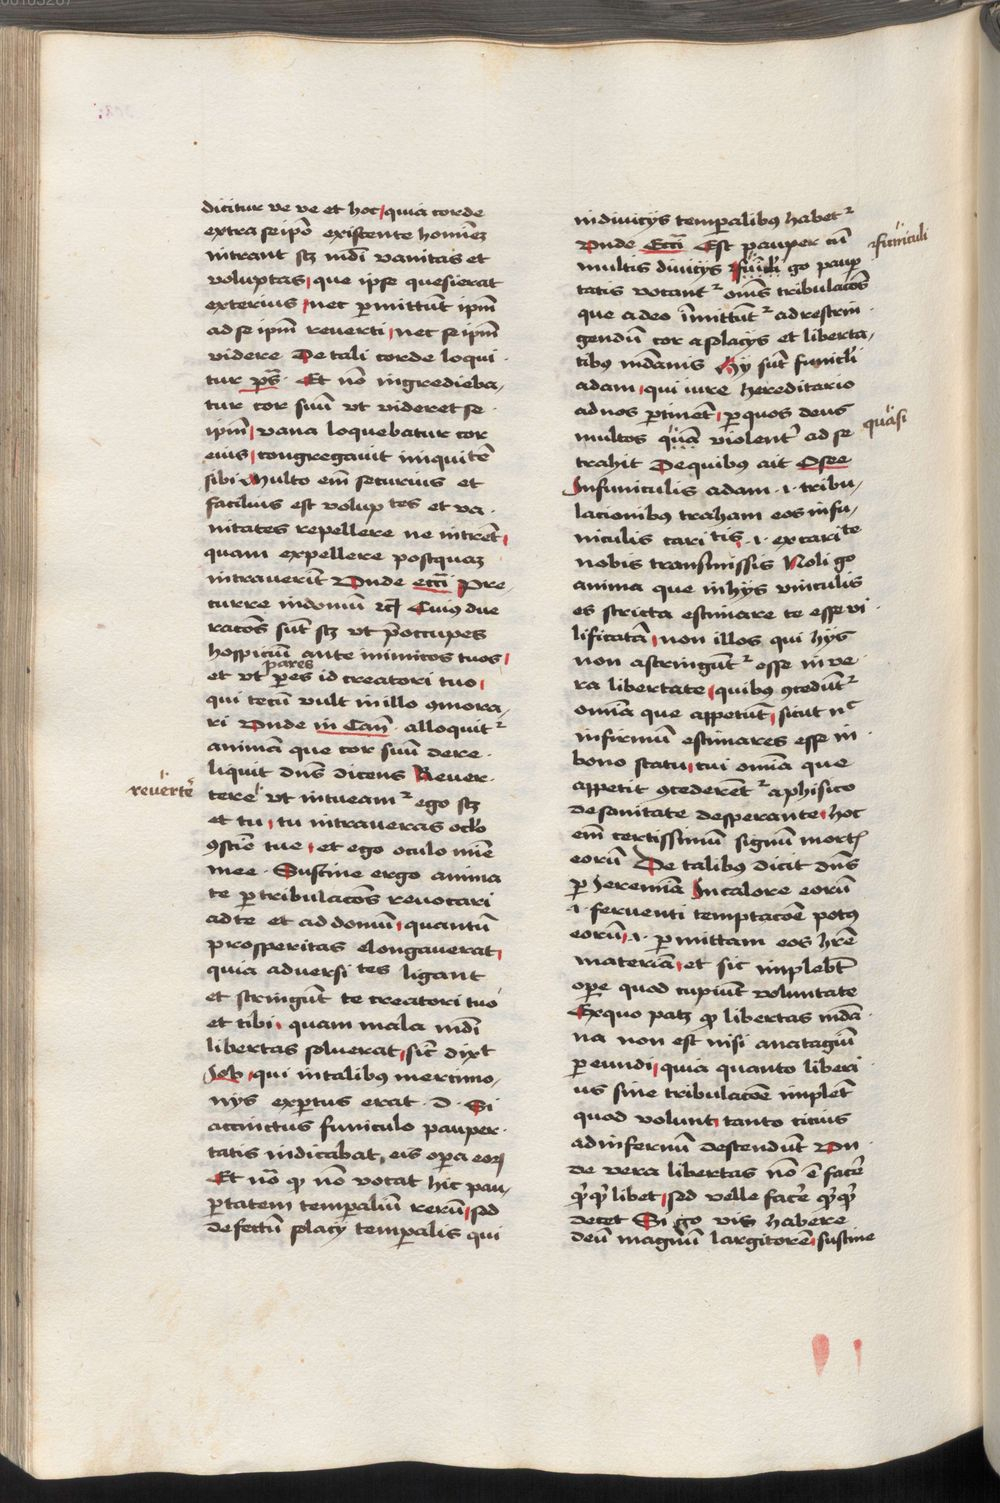 dicitur ve ve et hoc quia corde
extra seipō existente hominēz
intrant scz mdī vanitas et
voluptas que ipse quesierat
exterius nec permittūt ipm̄
ad se ipm̄ reverti nec se ipm̄
videre De tali corde loqui
tur pš Et nō ingredieba
tur cor suū vt videret se
ipm̄ vana loquebatur cor
eius congregavit iniquitē
sibi Multo em̄ securius et
facilius est voluptes et va
nitates repellere ne intrēt
quam expellere postquaz
intraverīt Vnde eccī Pre
curre in domū Cuius due
racōs sūt scz vt p̄occupes
hospiciū ante inimicos tuos
pares
et vt peres id creatori tuo
qui tecū vult in illo 9mora
ri Vnde in Can̄ alloquit²
animā que cor suū dere
liquit dn̄s dicens Rever
reverte
tere vt intueam² ego scz
et tu tu intraveras oclō
9sciē tue et ego oculo mīe
mee Sustine ergo anima
te per tribulacōs revocari
ad te et ad domū quantū
prosperitas elongaverat
quia adversites ligant
et stringūt te creatori tuo
et tibi quam mala mdī
libertas solverat sic dixt
Job qui in talibus mercimo
nys expertus erat d Si
accinctus funiculo pauper
tatis indicabat eis opera eorz
Et nō qd nō vocat hic pau
pertatem temperaliū rerū sed
defectū solacy temperalis qui
in divicijs temperalibus habet²
Vnde Eccī Est pauper cū
funiculi
multis divicijs go pauper
tatis vocant² om̄s tribulacōs
que a deo īmittūt² ad restrin
gendū cor a solacys et liberta
tibus mdānis Hy sūt funicli
adam qui iure hereditario
ad nos pertinēt per quos deus
quasi
multos quā violent' ad se
trahit De quibus ait Osee
In funiculis adam .i. tribu
lacionibus traham eos in fu
niculis caritis .i. ex carite
nobis transmissis Noli go
anima que in hijs vinculis
es stricta estimare te esse vi
lificatā non illos qui hijs
non astringūt² esse in ve
ra libertate quibus 9cedūt²
omīa que appetūt sicut nc
infirmū estimares esse in
bono statu cui omīa que
appetit 9cederēt² a phisico
de sanitate desperante hoc
em̄ certissimū signū mortz
eorū De talibus dicit dn̄s
per Jeremiā In calore eorū
.i. ferventi temptacōe potus
eorū .i. permittam eos hr̄e
materiā et sic implebt
opere quod cupiūt voluntate
Ex quo patz qd libertas mdā
na non est nisi
pereundi quia quanto liberi
us sine tribulacōe implēt
quod volunt tanto cicius
ad infernū descendūt Vn
de vera libertas nō ē facē
qd'qd' libet sed velle facē qd'qd'
decet Si go vis habere
deū magnū largitorē sustine